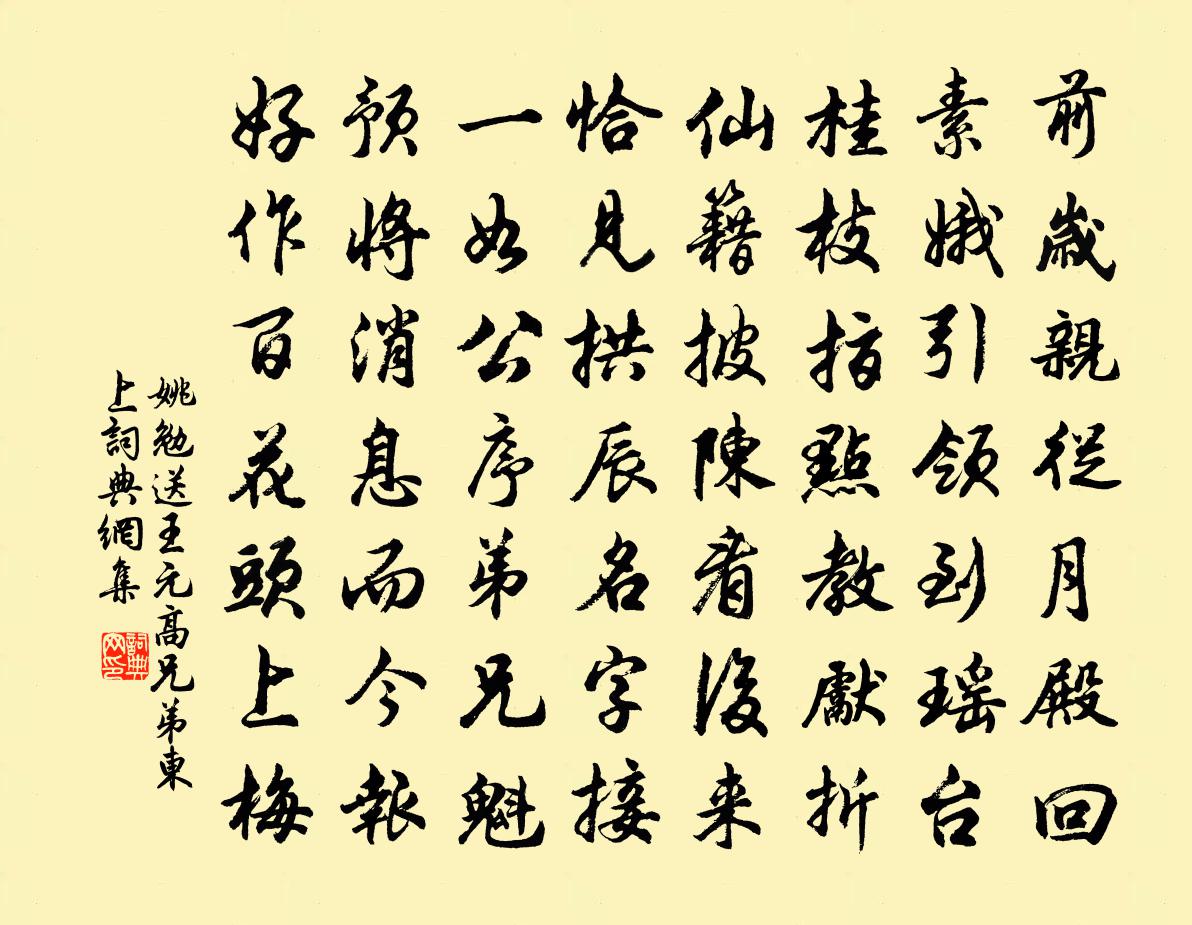 前歲親從月殿回
素娥引領到瑶台
桂枝指點教獻折
仙籍披陳看後来
恰見拱辰名字接
一如公序弟兄魁
預將消息而今報
好作百花頭上梅
姚勉送王元高兄弟東
上詞典網集
詞典网印